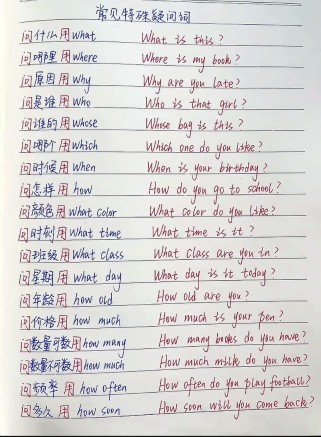 常见特殊疑问词
问什么用what What is this?
问哪里用where Where is my book?
问原因用why Why are you late?
问是谁用who Who is that girl?
问谁的用whose Whose bag is this?
问哪个用which Which one do you like?
问时候用when When is your birthday?
问怎样用how How do you go to school?
问颜色用what color What color do you like?
问时刻用what time What time is it?
问班级用what class What class are you in?
问星期用what day What day is it today?
问年龄用how old How old are you?
问价格用how much How much is your pen?
问数量可数用how many How many books do you have?
问数量不可数用how much How much milk do you have?
问频率用how often How often do you play football?
问多久用how soon How soon will you come back?